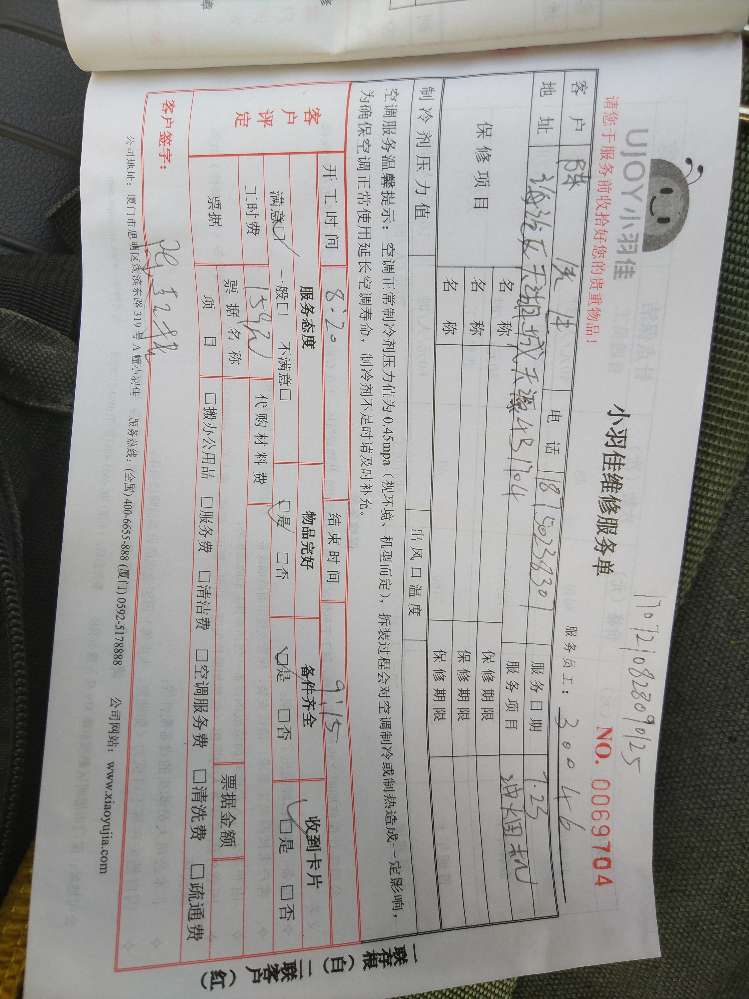 1707210828090125
UJOY小羽佳
小羽佳维修服务单
NO. 0069704
请您于服务前收拾好您的贵重物品!
服务员工: 30046
客户 陈先生 电话 18750238301 服务日期 7.23
地址 服务项目 油烟机
保修项目 名称 保修期限
名称 保修期限
名称 保修期限
制冷剂压力值 出风口温度
空调服务温馨提示:空调正常制冷剂压力值为0.45mpa(视环境、机型而定),拆装过程会对空调制冷或制热造成一定影响,
为确保空调正常使用延长空调寿命,制冷剂不足时请及时补充。
开工时间 8:20 结束时间 9:15
客户评定 服务态度 物品完好 备件齐全 收到卡片
满意□ 一般□ 不满意□ □是 □否 □是 □否 □是 □否
工时费 154元 代购材料费
票据 票据名称 票据金额
项目 □搬办公用品 □服务费 □清洁费 □空调服务费 □清洗费 □疏通费
客户签字:
公司地址:厦门市思明区 319号A幢小羽佳 服务热线:(全国)400-6655-888 (厦门)0592-5178888 公司网站:www.xiaoyujia.com
一联存根(白)二联客户(红)